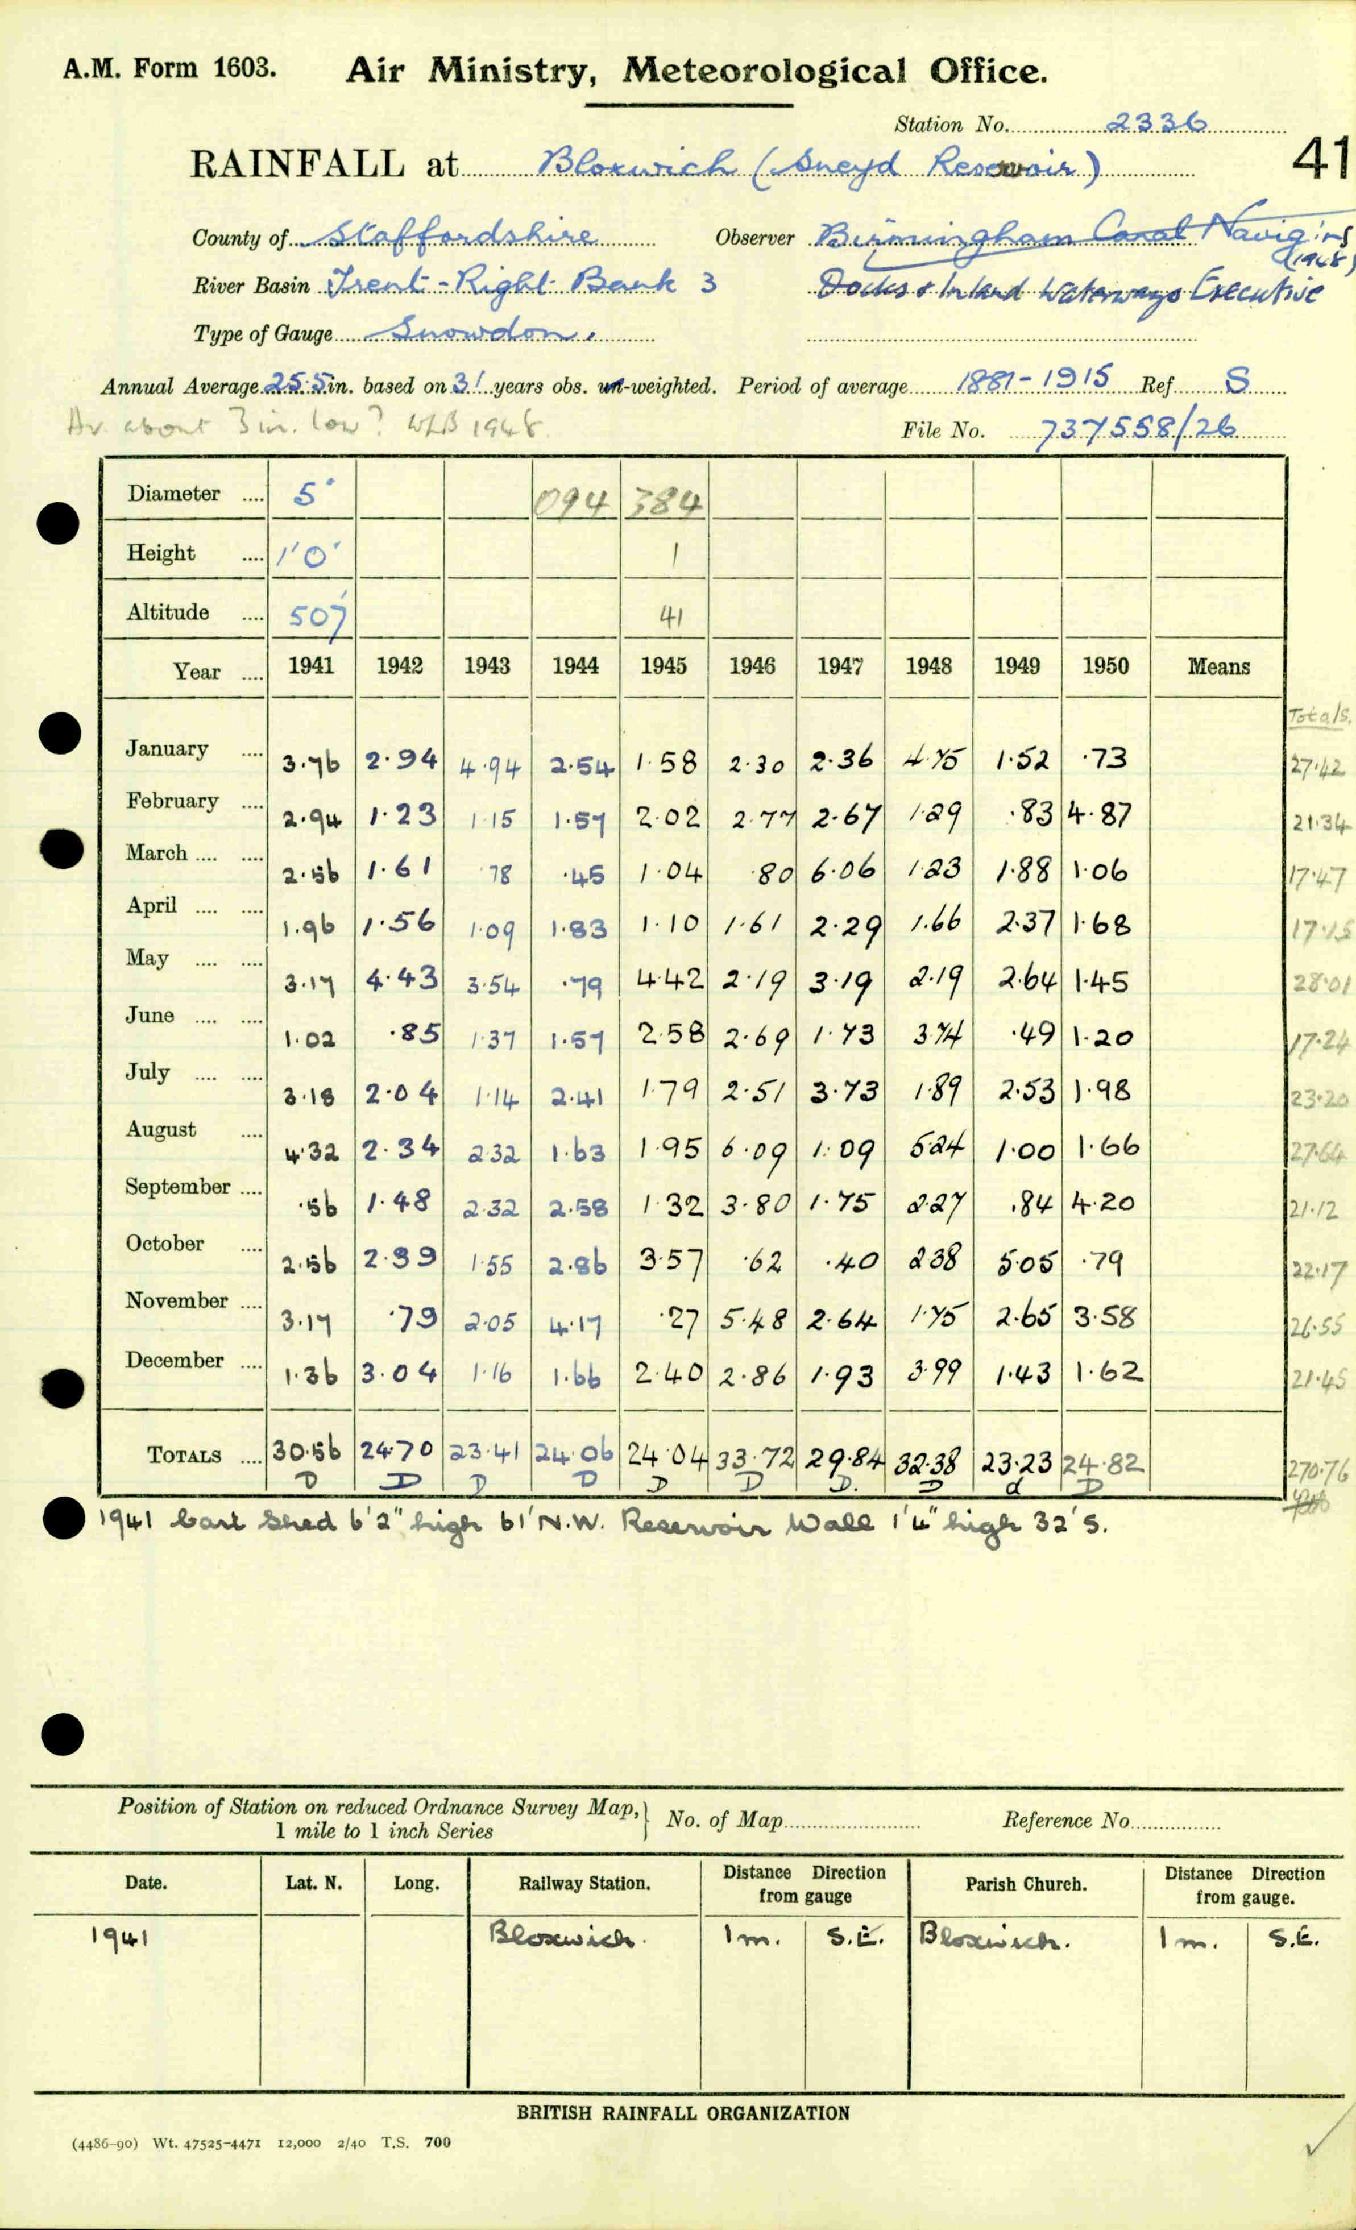 A.M. Form 1603. Air Ministry, Meteorological Office.
Station No. 2336
41
RAINFALL at Bloxwich (Sneyd Reservoir)
County of Staffordshire Observer Birmingham Canal Navig'ns
(1948)
River Basin Trent - Right Bank 3 Docks & Inland Waterways Executive
Type of Gauge Snowdon.
Annual Average 25.5 in. based on 31 years obs. un-weighted. Period of average 1881-1915 Ref S
Av. about 3 in. low? WLB 1948. File No. 737558/26
Diameter .... 5" 094 384
Height .... 1'0" 1
Altitude .... 507' 41
Year .... 1941 1942 1943 1944 1945 1946 1947 1948 1949 1950 Means
Totals.
January .... 3.76 2.94 4.94 2.54 1.58 2.30 2.36 4.75 1.52 .73 27.42
February .... 2.94 1.23 1.15 1.57 2.02 2.77 2.67 1.29 .83 4.87 21.34
March .... .... 2.56 1.61 .78 .45 1.04 .80 6.06 1.23 1.88 1.06 17.47
April .... .... 1.96 1.56 1.09 1.83 1.10 1.61 2.29 1.66 2.37 1.68 17.15
May .... .... 3.17 4.43 3.54 .79 4.42 2.19 3.19 2.19 2.64 1.45 28.01
June .... .... 1.02 .85 1.37 1.57 2.58 2.69 1.73 3.74 .49 1.20 17.24
July .... .... 3.18 2.04 1.14 2.41 1.79 2.51 3.73 1.89 2.53 1.98 23.20
August .... 4.32 2.34 2.32 1.63 1.95 6.09 1.09 5.24 1.00 1.66 27.64
September .... .56 1.48 2.32 2.58 1.32 3.80 1.75 2.27 .84 4.20 21.12
October .... 2.56 2.39 1.55 2.86 3.57 .62 .40 2.38 5.05 .79 22.17
November .... 3.17 .79 2.05 4.17 .27 5.48 2.64 1.75 2.65 3.58 26.55
December .... 1.36 3.04 1.16 1.66 2.40 2.86 1.93 3.99 1.43 1.62 21.45
TOTALS .... 30.56 24.70 23.41 24.06 24.04 33.72 29.84 32.38 23.23 24.82 270.76
D D D D D D D. D d D
1941 Cart Shed 6'2" high 61' N.W. Reservoir Wall 1'4" high 32' S.
Position of Station on reduced Ordnance Survey Map, } No. of Map Reference No.
1 mile to 1 inch Series
Date. Lat. N. Long. Railway Station. Distance Direction from gauge Parish Church. Distance Direction from gauge.
1941 Bloxwich. 1 m. S.E. Bloxwich. 1 m. S.E.
BRITISH RAINFALL ORGANIZATION
(4486-90) Wt. 47525-4471 12,000 2/40 T.S. 700